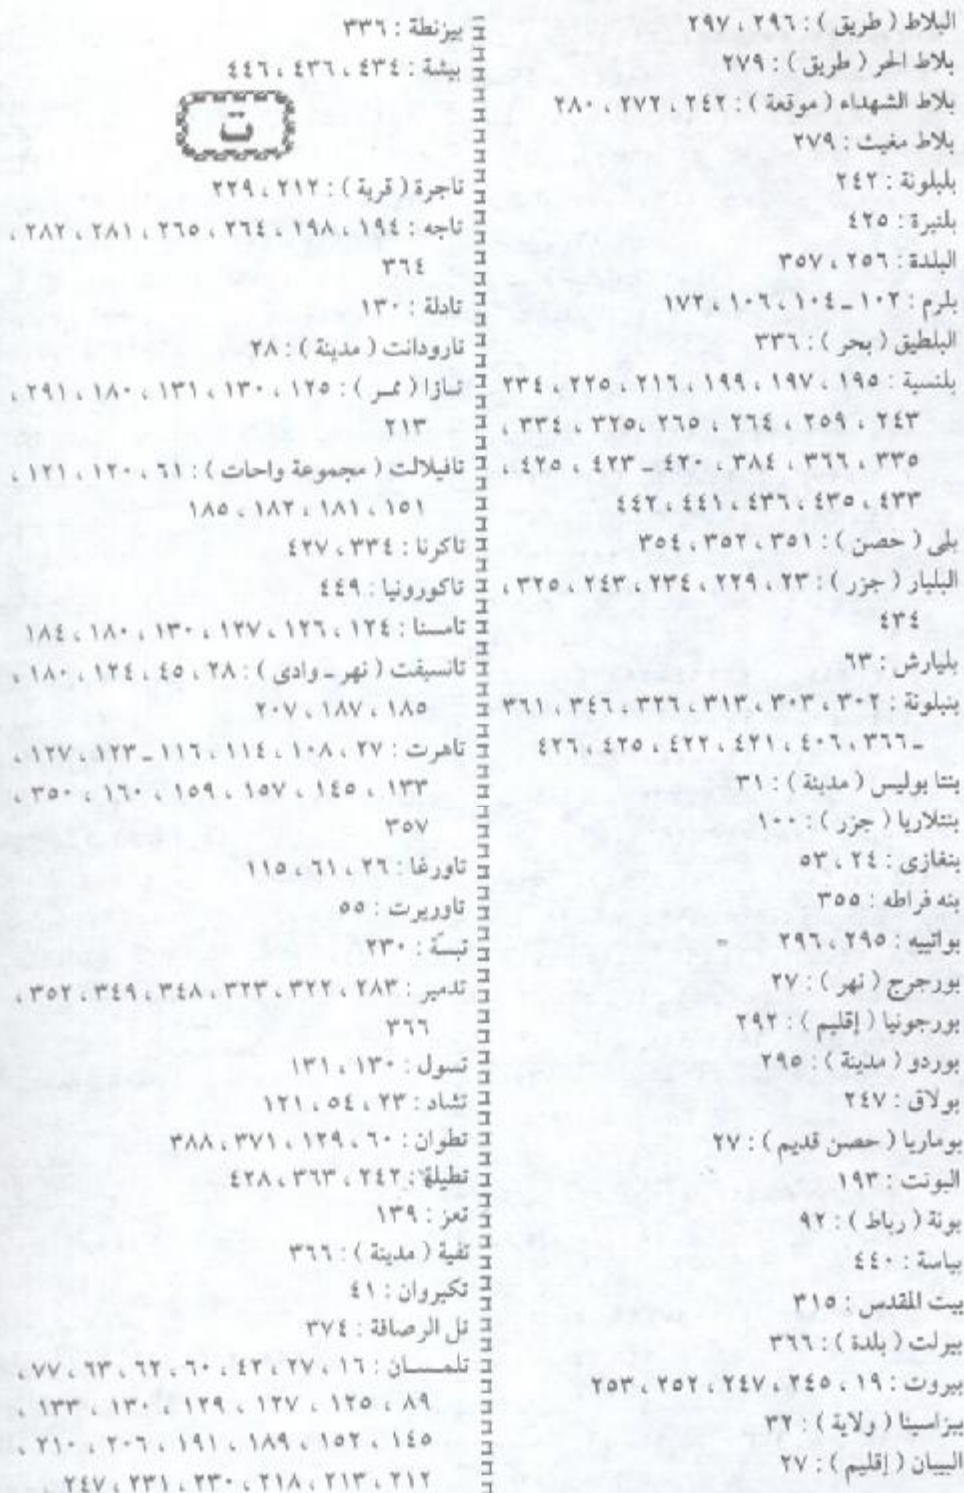 البلاط ( طريق ) : ٢٩٦ ، ٢٩٧
بلاط الحر ( طريق ) : ٢٧٩
بلاط الشهداء ( موقعة ) : ٢٤٢ ، ٢٧٢ ، ٢٨٠
بلاط مغيث : ٢٧٩
بلبلونة : ٢٤٢
بلنيرة : ٤٢٥
البلدة : ٢٥٦ ، ٣٥٧
بلرم : ١٠٢ ـ ١٠٤ ، ١٠٦ ، ١٧٢
البلطيق ( بحر ) : ٣٣٦
بلنسية : ١٩٥ ، ١٩٧ ، ١٩٩ ، ٢١٦ ، ٢٢٥ ، ٢٣٤
٢٤٣ ، ٢٥٩ ، ٢٦٤ ، ٢٦٥ ، ٣٢٥ ، ٣٣٤ ،
٣٣٥ ، ٣٦٦ ، ٣٨٤ ، ٤٢٠ ـ ٤٢٣ ، ٤٢٥ ،
٤٣٣ ، ٤٣٥ ، ٤٣٦ ، ٤٤١ ، ٤٤٢
بلى ( حصن ) : ٣٥١ ، ٣٥٢ ، ٣٥٤
البليار ( جزر ) : ٢٣ ، ٢٢٩ ، ٢٣٤ ، ٢٤٣ ، ٣٢٥ ،
٤٣٤
بليارش : ٦٣
بنبلونة : ٣٠٢ ، ٣٠٣ ، ٣١٣ ، ٣٢٦ ، ٣٤٦ ، ٣٦١
ـ ٣٦٦ ، ٤٠٦ ، ٤٢١ ، ٤٢٢ ، ٤٢٥ ، ٤٢٦
بنتا بوليس ( مدينة ) : ٣١
بنتلاريا ( جزر ) : ١٠٠
بنغازى : ٢٤ ، ٥٣
بنه فراطه : ٣٥٥
بواتييه : ٢٩٥ ، ٢٩٦
بورجرج ( نهر ) : ٢٧
بورجونيا ( إقليم ) : ٢٩٢
بوردو ( مدينة ) : ٢٩٥
بولاق : ٢٤٧
بوماريا ( حصن قديم ) : ٢٧
البونت : ١٩٣
بونة ( رباط ) : ٩٢
بياسة : ٤٤٠
بيت المقدس : ٣١٥
بيرلت ( بلدة ) : ٣٦٦
بيروت : ١٩ ، ٢٤٥ ، ٢٤٧ ، ٢٥٢ ، ٢٥٣
بيزاسينا ( ولاية ) : ٣٢
البيبان ( إقليم ) : ٢٧
بيزنطة : ٣٣٦
بيشة : ٤٣٤ ، ٤٣٦ ، ٤٤٦
ت
تاجرة ( قرية ) : ٢١٢ ، ٢٢٩
تاجه : ١٩٤ ، ١٩٨ ، ٢٦٤ ، ٢٦٥ ، ٢٨١ ، ٢٨٢ ،
٣٦٤
تادلة : ١٣٠
تارودانت ( مدينة ) : ٢٨
تـازا ( ممـر ) : ١٢٥ ، ١٣٠ ، ١٣١ ، ١٨٠ ، ٢٩١ ،
٢١٣
تافيلالت ( مجموعة واحات ) : ٦١ ، ١٢٠ ، ١٢١ ،
١٥١ ، ١٨١ ، ١٨٢ ، ١٨٥
تاكرنا : ٣٣٤ ، ٤٢٧
تاكورونيا : ٤٤٩
تامسنا : ١٢٤ ، ١٢٦ ، ١٢٧ ، ١٣٠ ، ١٨٠ ، ١٨٤
تانسيفت ( نهر ـ وادى ) : ٢٨ ، ٤٥ ، ١٢٤ ، ١٨٠ ،
١٨٥ ، ١٨٧ ، ٢٠٧
تاهرت : ٢٧ ، ١٠٨ ، ١١٤ ، ١١٦ ـ ١٢٣ ، ١٢٧ ،
١٣٣ ، ١٤٥ ، ١٥٧ ، ١٥٩ ، ١٦٠ ، ٣٥٠ ،
٣٥٧
تاورغا : ٢٦ ، ٦١ ، ١١٥
تاوريرت : ٥٥
تبسة : ٢٣٠
تدمير : ٢٨٣ ، ٣٢٢ ، ٣٢٣ ، ٣٤٨ ، ٣٤٩ ، ٣٥٢ ،
٣٦٦
تسول : ١٣٠ ، ١٣١
تشاد : ٢٣ ، ٥٤ ، ١٢١
تطوان : ٦٠ ، ١٢٩ ، ٣٧١ ، ٣٨٨
تطيلة : ٢٤٢ ، ٣٦٣ ، ٤٢٨
تعز : ١٣٩
تفية ( مدينة ) : ٣٦٦
تكيروان : ٤١
تل الرصافة : ٣٧٤
تلمســـان : ١٦ ، ٢٧ ، ٤٢ ، ٦٠ ، ٦٢ ، ٦٣ ، ٧٧ ،
٨٩ ، ١٢٥ ، ١٢٧ ، ١٢٩ ، ١٣٠ ، ١٣٣ ،
١٤٥ ، ١٥٢ ، ١٨٩ ، ١٩١ ، ٢٠٦ ، ٢١٠ ،
٢١٢ ، ٢١٣ ، ٢١٨ ، ٢٣٠ ، ٢٣١ ، ٢٤٧ ،